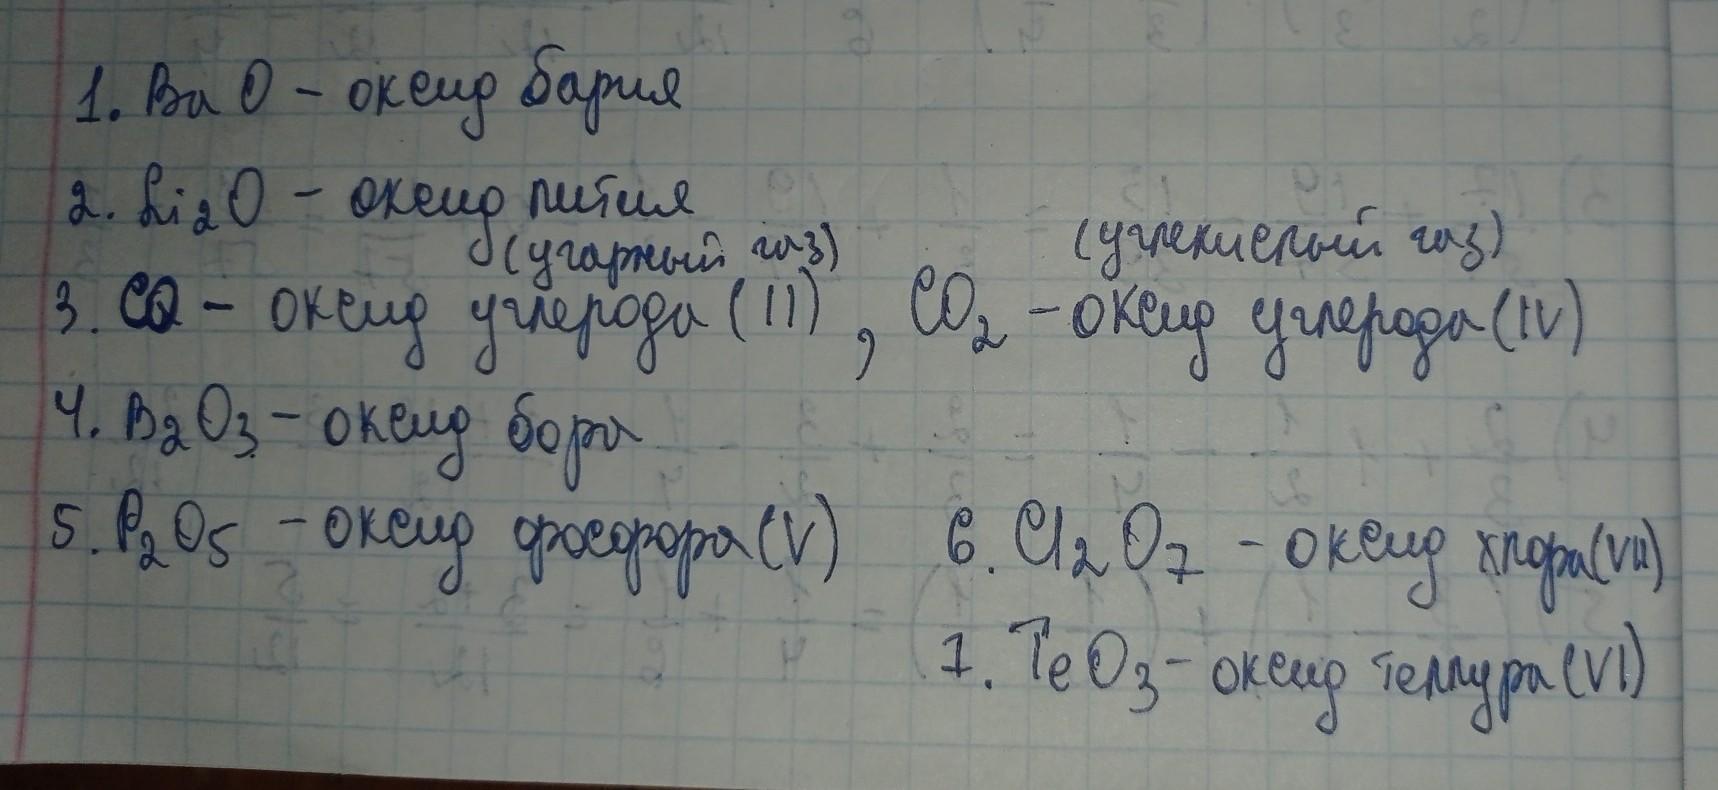 1. BaO - оксид бария
2. Li₂O - оксид лития
(угарный газ) (углекислый газ)
3. CO - оксид углерода (II), CO₂ - оксид углерода (IV)
4. B₂O₃ - оксид бора
5. P₂O₅ - оксид фосфора (V) 6. Cl₂O₇ - оксид хлора (VII)
7. TeO₃ - оксид теллура (VI)